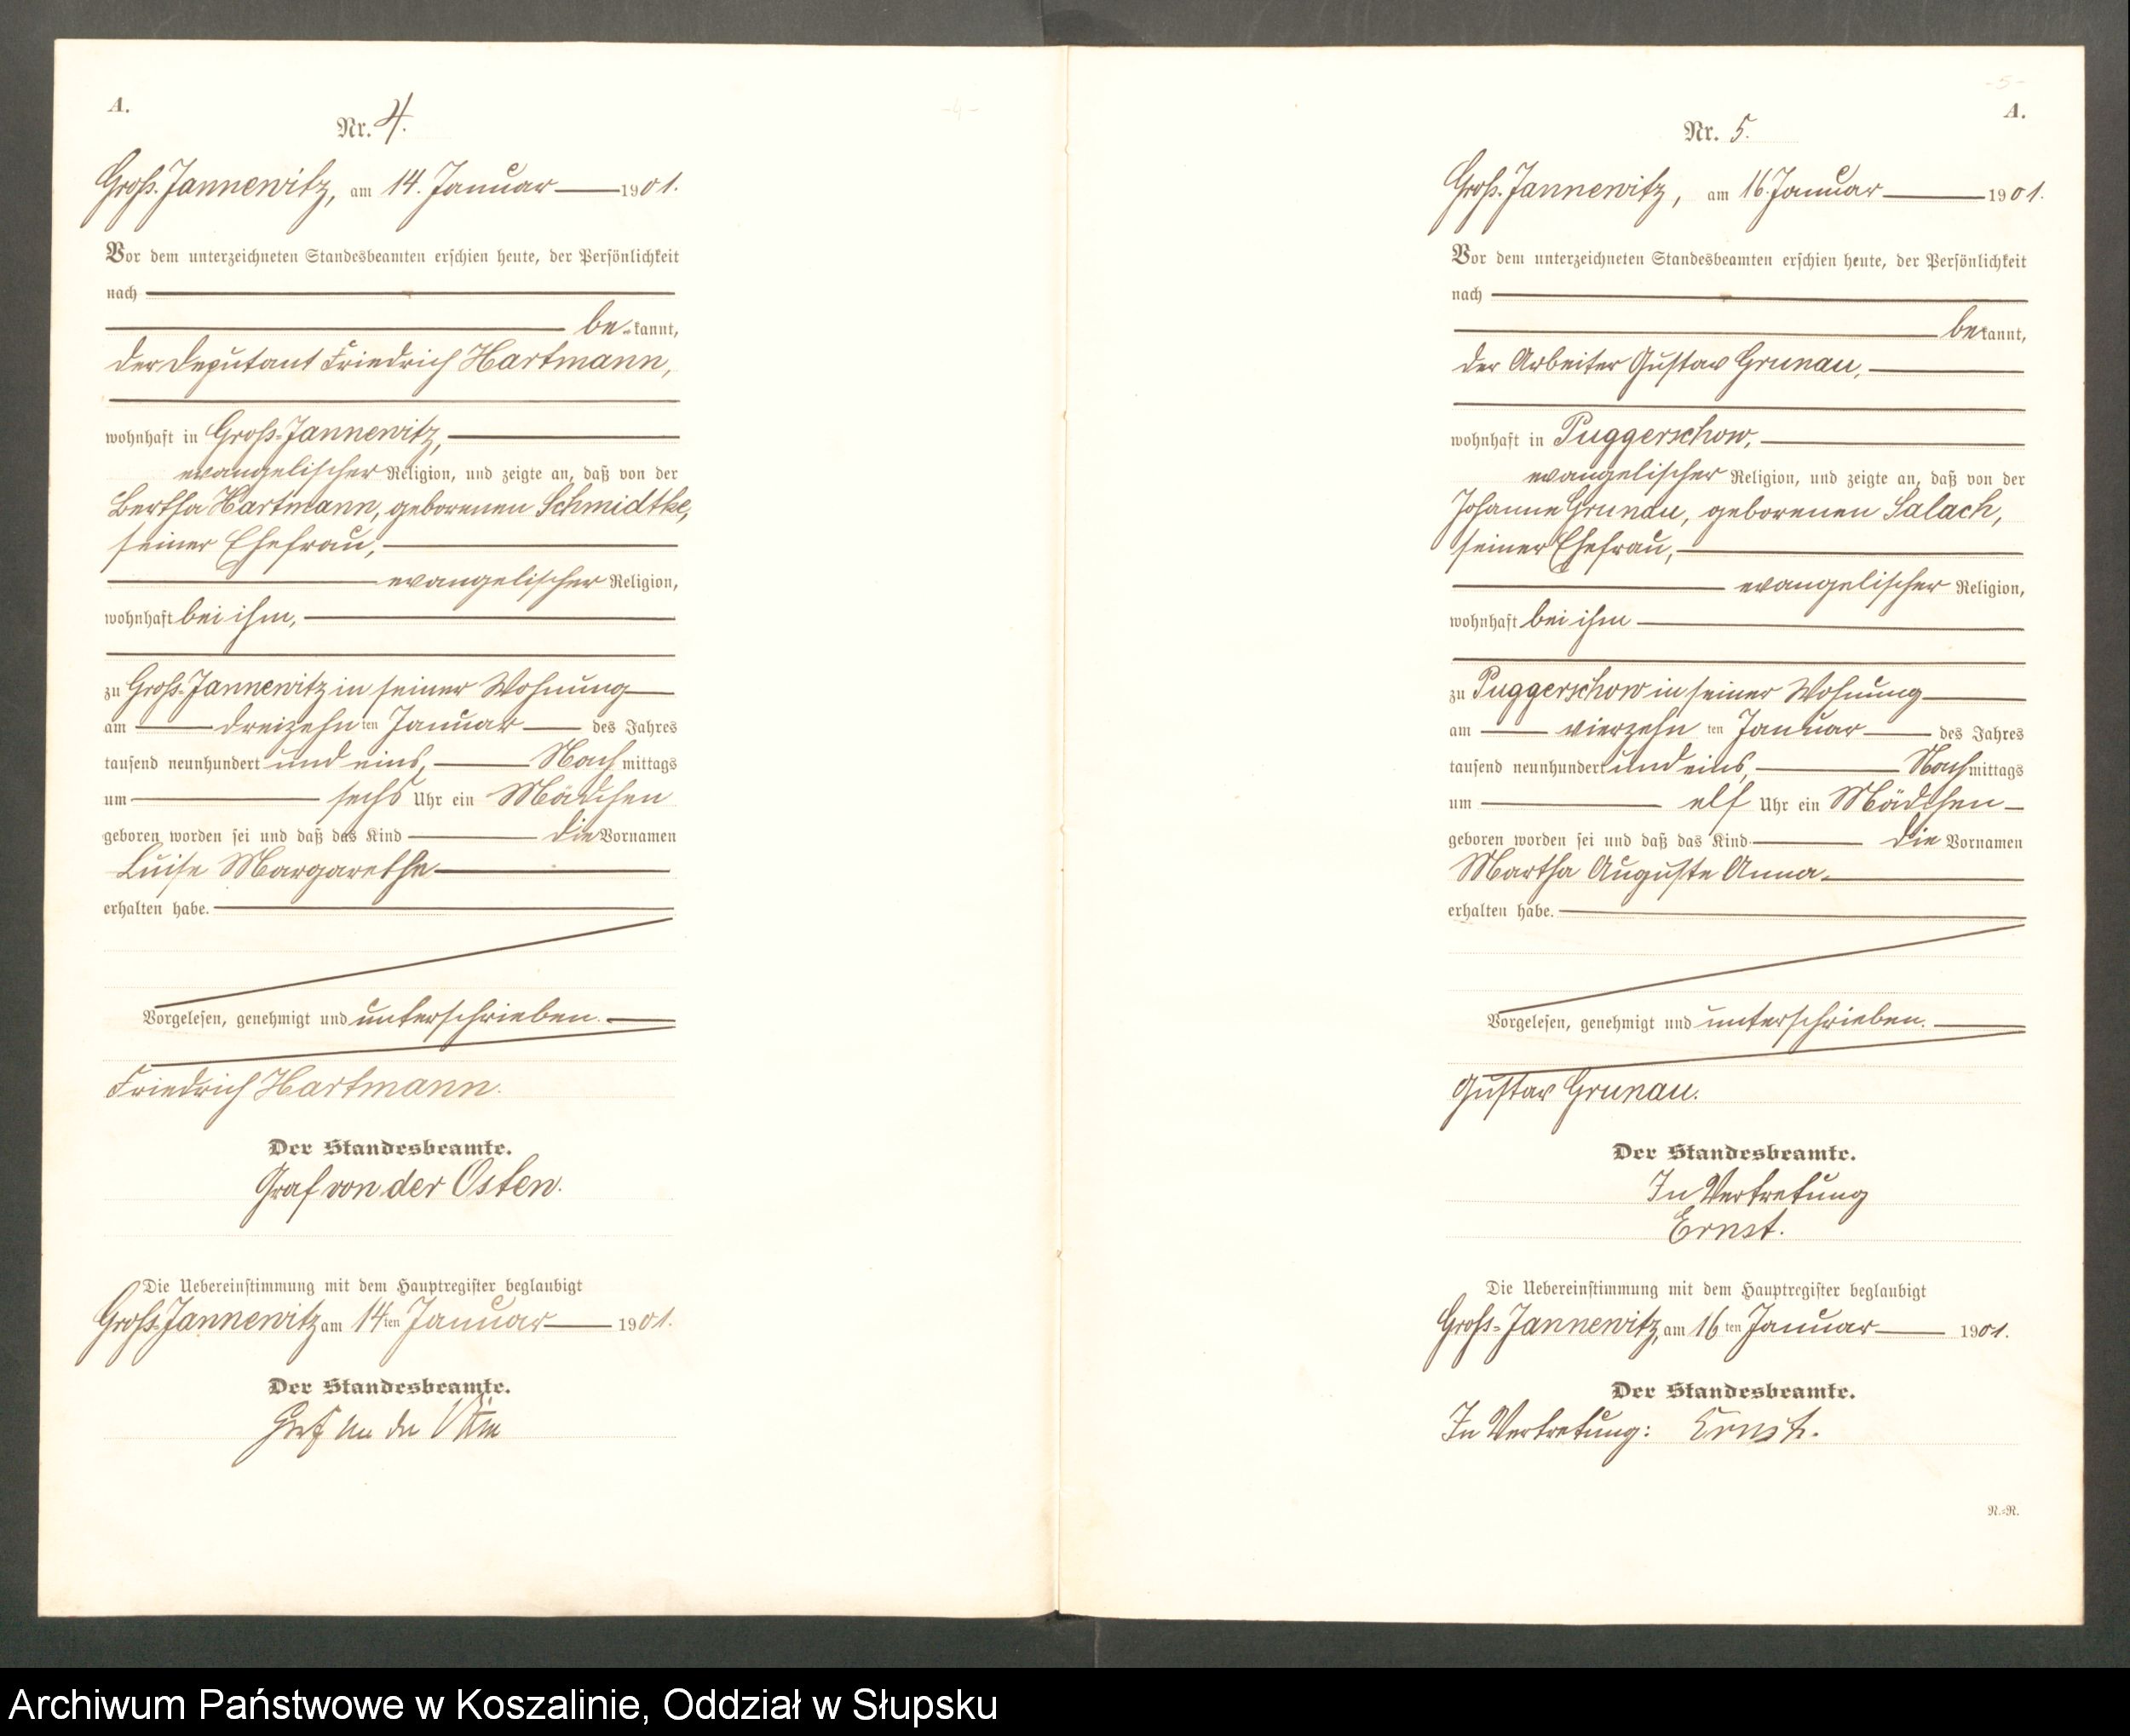 A.
Nr. 4.
Groß-Jannewitz, am 14. Januar 1901.
Vor dem unterzeichneten Standesbeamten erschien heute, der Persönlichkeit
nach
be-kannt,
der Deputant Friedrich Hartmann,
wohnhaft in Groß-Jannewitz,
evangelischer Religion, und zeigte an, daß von der
Bertha Hartmann, geborenen Schmidtke,
seiner Ehefrau,
evangelischer Religion,
wohnhaft bei ihm,
zu Groß-Jannewitz in seiner Wohnung
am dreizehnten Januar des Jahres
tausend neunhundert und eins, Nachmittags
um sechs Uhr ein Mädchen
geboren worden sei und daß das Kind die Vornamen
Luise Margarethe
erhalten habe.
Vorgelesen, genehmigt und unterschrieben.
Friedrich Hartmann.
Der Standesbeamte.
Graf von der Osten.
Die Uebereinstimmung mit dem Hauptregister beglaubigt
Groß-Jannewitz am 14ten Januar 1901.
Der Standesbeamte.
Graf von der Osten
-4-
-5-
A.
Nr. 5.
Groß-Jannewitz, am 16. Januar 1901.
Vor dem unterzeichneten Standesbeamten erschien heute, der Persönlichkeit
nach
bekannt,
der Arbeiter Gustav Grunau,
wohnhaft in Puggerschow,
evangelischer Religion, und zeigte an, daß von der
Johanne Grunau, geborenen Salach,
seiner Ehefrau,
evangelischer Religion,
wohnhaft bei ihm
zu Puggerschow in seiner Wohnung
am vierzehnten Januar des Jahres
tausend neunhundert und eins, Nachmittags
um elf Uhr ein Mädchen
geboren worden sei und daß das Kind die Vornamen
Martha Auguste Anna
erhalten habe.
Vorgelesen, genehmigt und unterschrieben.
Gustav Grunau.
Der Standesbeamte.
In Vertretung
Ernst.
Die Uebereinstimmung mit dem Hauptregister beglaubigt
Groß-Jannewitz, am 16ten Januar 1901.
Der Standesbeamte.
In Vertretung: Ernst.
N.=R.
Archiwum Państwowe w Koszalinie, Oddział w Słupsku